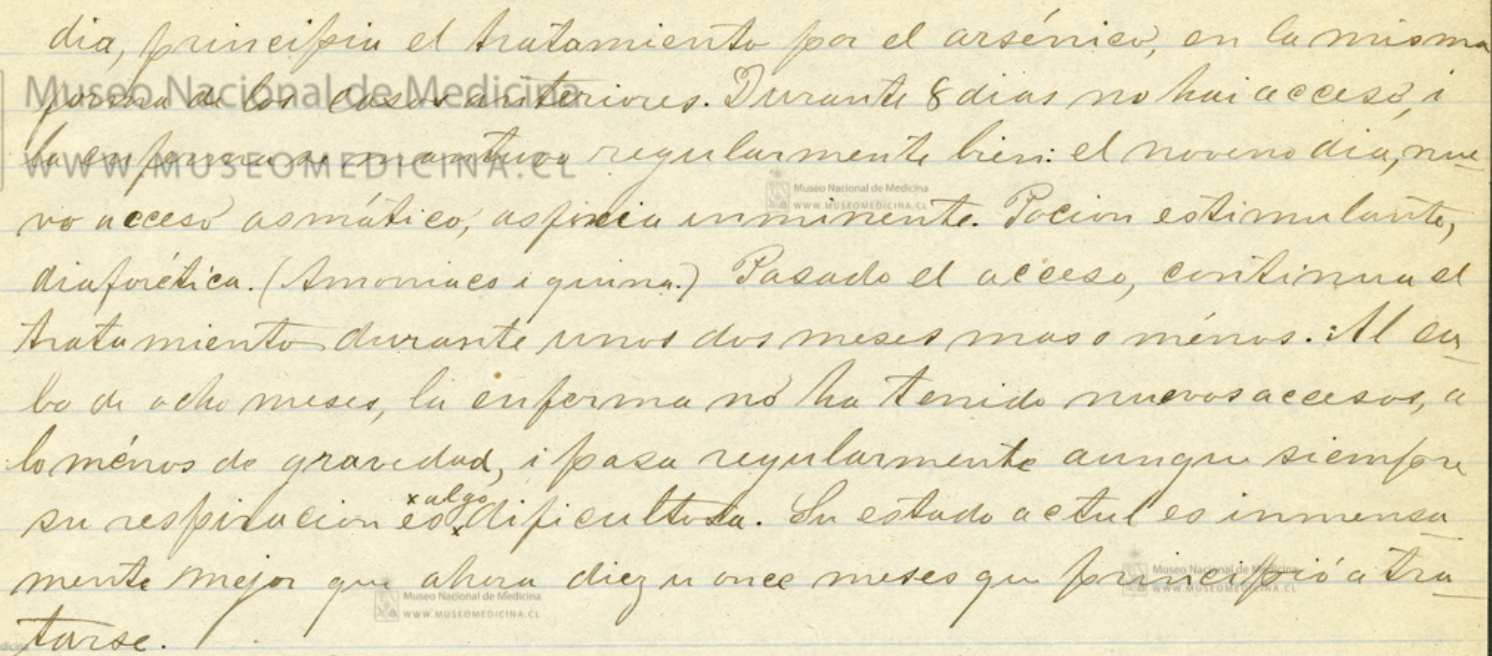 dia, principia el tratamiento por el arsénico, en la misma
forma de los casos anteriores. Durante 8 dias no hai acceso, i
la enferma se mantuvo regularmente bien: el noveno dia, nue-
vo acceso asmático, asfixia inminente. Pocion estimulante,
diaforética. (Amoniaco i quina.) Pasado el acceso, continua el
tratamiento durante unos dos meses mas o ménos. Al ca-
bo de ocho meses, la enferma no ha tenido nuevos accesos, a
lo ménos de gravedad, i pasa regularmente aunque siempre
su respiracion es algo dificultosa. Su estado actul es inmensa-
mente mejor que ahora diez u once meses que principió a tra-
tarse.
Museo Nacional de Medicina
WWW.MUSEOMEDICINA.CL
Museo Nacional de Medicina
WWW.MUSEOMEDICINA.CL
Museo Nacional de Medicina
WWW.MUSEOMEDICINA.CL
Museo Nacional de Medicina
WWW.MUSEOMEDICINA.CL